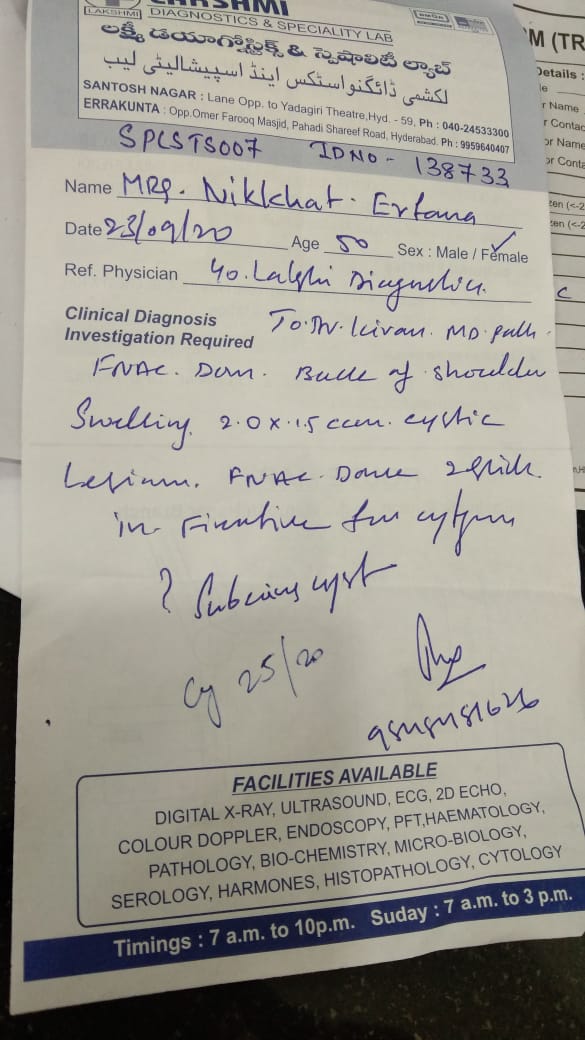 LAKSHMI
DIAGNOSTICS & SPECIALITY LAB
LAKSHMI
లక్ష్మీ డయాగ్నోస్టిక్స్ & స్పెషాలిటీ ల్యాబ్
لکشمی ڈائگنواسٹکس اینڈ اسپیشالیٹی لیب
SANTOSH NAGAR : Lane Opp. to Yadagiri Theatre,Hyd. - 59, Ph : 040-24533300
ERRAKUNTA : Opp.Omer Farooq Masjid, Pahadi Shareef Road, Hyderabad. Ph : 9959640407
SPLSTS007 ID NO - 138733
Name MRs. Nikkhat. Erfana
Date 23/09/20 Age 50 Sex : Male / Female
Ref. Physician Diagnostics.
Clinical Diagnosis
Investigation Required
To. Dr. kiran. MD. path.
FNAC. Back of shoulder
Swelling. 2.0 x 1.5 cm. cystic
Lesion. FNAC. Done 2 slide
in Fixative for
? cyst
Cy 25/20
FACILITIES AVAILABLE
DIGITAL X-RAY, ULTRASOUND, ECG, 2D ECHO,
COLOUR DOPPLER, ENDOSCOPY, PFT,HAEMATOLOGY,
PATHOLOGY, BIO-CHEMISTRY, MICRO-BIOLOGY,
SEROLOGY, HARMONES, HISTOPATHOLOGY, CYTOLOGY
Timings : 7 a.m. to 10p.m. Suday : 7 a.m. to 3 p.m.
M (TR
Details :
r Name
r Contac
or Name
or Conta